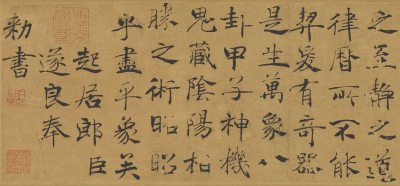 之至靜之道
律曆所不能
契爰有奇器
是生萬象八
卦甲子神機
鬼藏陰陽相
勝之術昭昭
乎盡乎象矣
起居郎臣
遂良奉
勑書